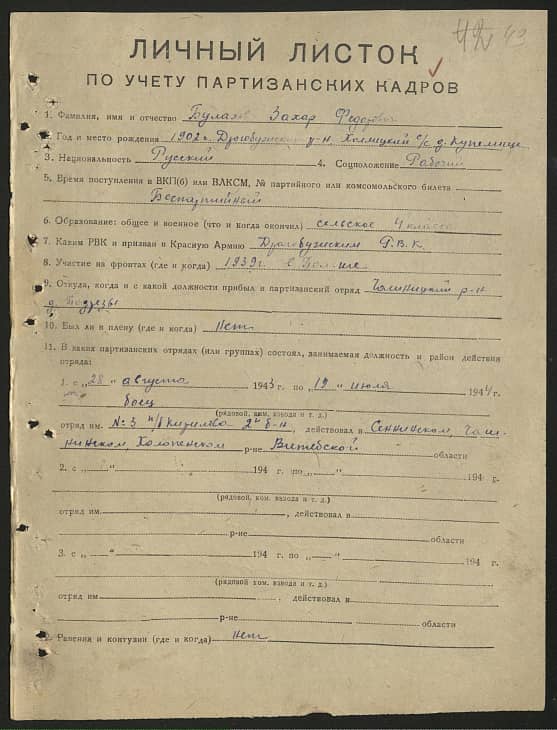 ЛИЧНЫЙ ЛИСТОК
ПО УЧЕТУ ПАРТИЗАНСКИХ КАДРОВ
1. Фамилия, имя и отчество Захар Федорович
2. Год и место рождения 1902 г. Дрогобужский р-н, Холмицкий с/с д.
3. Национальность Русский 4. Соцположение Рабочий
5. Время поступления в ВКП(б) или ВЛКСМ, № партийного или комсомольского билета
Беспартийный
6. Образование: общее и военное (что и когда окончил) сельское 4 класса
7. Каким РВК и призван в Красную Армию Дрогобужским Р.В.К.
8. Участие на фронтах (где и когда) 1939г. в
9. Откуда, когда и с какой должности прибыл в партизанский отряд р-н
д.
10. Был ли в плену (где и когда) Нет
11. В каких партизанских отрядах (или группах) состоял, занимаемая должность и район действия
отряда:
1. с „28 " августа 1943 г. по „19 " июля 1944 г.
боец
(рядовой, ком. взвода и т. д.)
отряд им. № 3 2й б-н, действовал в Сеннинском, Чаш-
никском, Холопенском р-не Витебской области
2. с „ " 194 г. по „ " 194 г.
(рядовой, ком. взвода и т. д.)
отряд им. , действовал в
р-не области
3. с „ " 194 г. по „ " 194 г.
(рядовой ком. взвода и т. д.)
отряд им , действовал в
р-не области
Ранения и контузии (где и когда) Нет